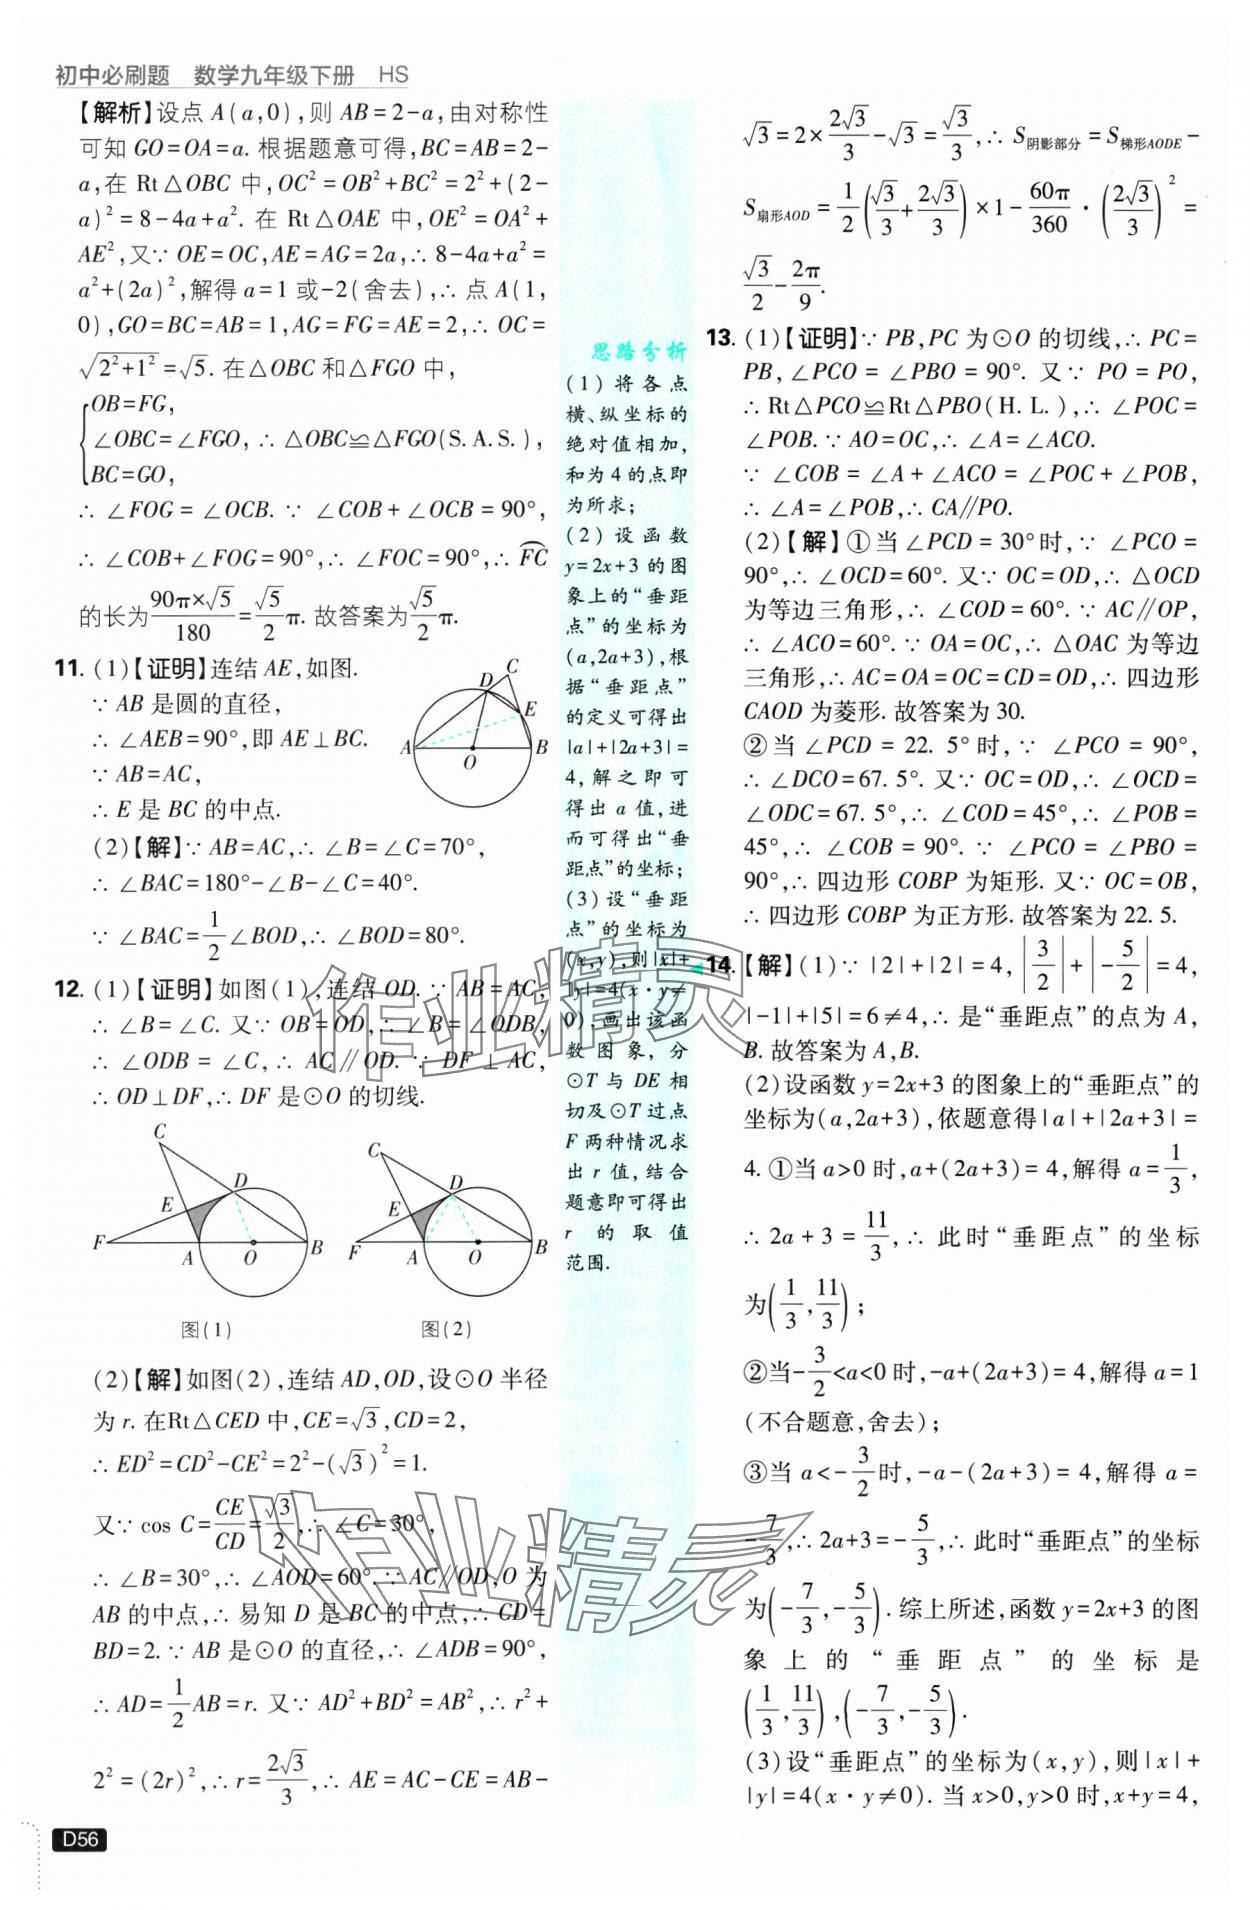 初中必刷题 数学九年级下册 HS
【解析】设点 A(a,0),则 AB=2-a,由对称性
可知 GO=OA=a. 根据题意可得,BC=AB=2-
a,在 Rt△OBC 中,OC²=OB²+BC²=2²+(2-
a)²=8-4a+a². 在 Rt△OAE 中,OE²=OA²+
AE²,又∵ OE=OC,AE=AG=2a,∴ 8-4a+a²=
a²+(2a)²,解得 a=1 或-2(舍去),∴ 点 A(1,
0),GO=BC=AB=1,AG=FG=AE=2,∴ OC=
√(2²+1²)=√5. 在△OBC 和△FGO 中,
OB=FG,
∠OBC=∠FGO, ∴ △OBC≌△FGO(S.A.S.),
BC=GO,
∴ ∠FOG=∠OCB. ∵ ∠COB+∠OCB=90°,
∴ ∠COB+∠FOG=90°,∴ ∠FOC=90°,∴ F͡C
的长为90π×√5/180=√5/2π. 故答案为√5/2π.
11. (1)【证明】连结 AE,如图.
∵ AB 是圆的直径,
∴ ∠AEB=90°,即 AE⊥BC.
∵ AB=AC,
∴ E 是 BC 的中点.
C
D
E
A
O
B
(2)【解】∵ AB=AC,∴ ∠B=∠C=70°,
∴ ∠BAC=180°-∠B-∠C=40°.
∵ ∠BAC=1/2∠BOD,∴ ∠BOD=80°.
12. (1)【证明】如图(1),连结 OD. ∵ AB=AC,
∴ ∠B=∠C. 又∵ OB=OD,∴ ∠B=∠ODB,
∴ ∠ODB=∠C,∴ AC∥OD. ∵ DF⊥AC,
∴ OD⊥DF,∴ DF 是⊙O 的切线.
C
D
E
F
A
O
B
图(1)
C
D
E
F
A
O
B
图(2)
(2)【解】如图(2),连结 AD,OD,设⊙O 半径
为 r. 在Rt△CED 中,CE=√3,CD=2,
∴ ED²=CD²-CE²=2²-(√3)²=1.
又∵ cos C=CE/CD=√3/2,∴ ∠C=30°,
∴ ∠B=30°,∴ ∠AOD=60°. ∵ AC∥OD,O 为
AB 的中点,∴ 易知 D 是 BC 的中点,∴ CD=
BD=2. ∵ AB 是⊙O 的直径,∴ ∠ADB=90°,
∴ AD=1/2AB=r. 又∵ AD²+BD²=AB²,∴ r²+
2²=(2r)²,∴ r=2√3/3,∴ AE=AC-CE=AB-
D56
思路分析
(1)将各点
横、纵坐标的
绝对值相加,
和为4的点即
为所求;
(2)设函数
y=2x+3的图
象上的“垂距
点”的坐标为
(a,2a+3),根
据“垂距点”
的定义可得出
|a|+|2a+3|=
4,解之即可
得出a值,进
而可得出“垂
距点”的坐标;
(3)设“垂距
点”的坐标为
(x,y),则|x|+
|y|=4(x·y≠
0),画出该函
数图象,分
⊙T与DE相
切及⊙T过点
F两种情况求
出r值,结合
题意即可得出
r的取值
范围.
√3=2×2√3/3-√3=√3/3,∴ S阴影部分=S梯形AODE-
S扇形AOD=1/2(√3/3+2√3/3)×1-60π/360·(2√3/3)²=
√3/2-2π/9.
13. (1)【证明】∵ PB,PC 为⊙O 的切线,∴ PC=
PB,∠PCO=∠PBO=90°. 又∵ PO=PO,
∴ Rt△PCO≌Rt△PBO(H.L.),∴ ∠POC=
∠POB. ∵ AO=OC,∴ ∠A=∠ACO.
∵ ∠COB=∠A+∠ACO=∠POC+∠POB,
∴ ∠A=∠POB,∴ CA∥PO.
(2)【解】①当∠PCD=30°时,∵ ∠PCO=
90°,∴ ∠OCD=60°. 又∵ OC=OD,∴ △OCD
为等边三角形,∴ ∠COD=60°. ∵ AC∥OP,
∴ ∠ACO=60°. ∵ OA=OC,∴ △OAC 为等边
三角形,∴ AC=OA=OC=CD=OD,∴ 四边形
CAOD 为菱形. 故答案为 30.
②当∠PCD=22.5°时,∵ ∠PCO=90°,
∴ ∠DCO=67.5°. 又∵ OC=OD,∴ ∠OCD=
∠ODC=67.5°,∴ ∠COD=45°,∴ ∠POB=
45°,∴ ∠COB=90°. ∵ ∠PCO=∠PBO=
90°,∴ 四边形 COBP 为矩形. 又∵ OC=OB,
∴ 四边形 COBP 为正方形. 故答案为 22.5.
14.【解】(1)∵ |2|+|2|=4,|3/2|+|-5/2|=4,
|-1|+|5|=6≠4,∴ 是“垂距点”的点为 A,
B. 故答案为 A,B.
(2)设函数 y=2x+3 的图象上的“垂距点”的
坐标为(a,2a+3),依题意得|a|+|2a+3|=
4. ①当 a>0 时,a+(2a+3)=4,解得 a=1/3,
∴ 2a+3=11/3,∴ 此时“垂距点”的坐标
为(1/3,11/3);
②当-3/2<a<0 时,-a+(2a+3)=4,解得 a=1
(不合题意,舍去);
③当 a<-3/2时,-a-(2a+3)=4,解得 a=
-7/3,∴ 2a+3=-5/3,∴ 此时“垂距点”的坐标
为(-7/3,-5/3). 综上所述,函数 y=2x+3 的图
象上的“垂距点”的坐标是
(1/3,11/3),(-7/3,-5/3).
(3)设“垂距点”的坐标为(x,y),则|x|+
|y|=4(x·y≠0). 当 x>0,y>0 时,x+y=4,
作业精灵
作业精灵